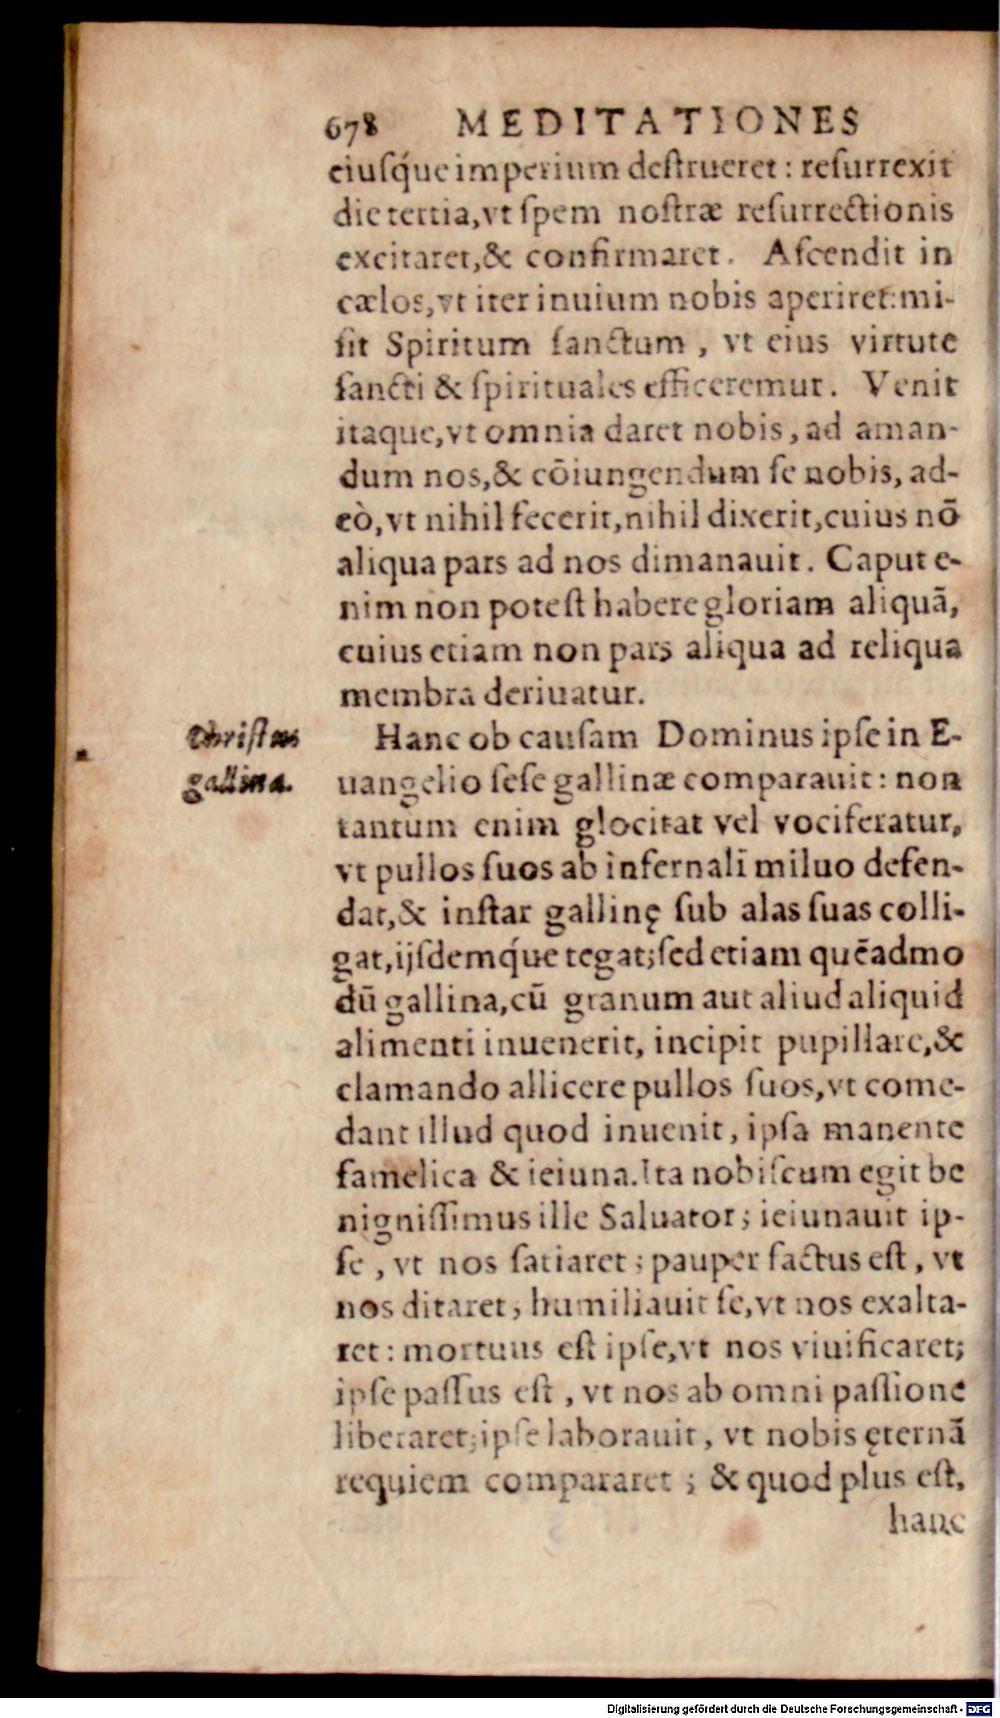 678 MEDITATIONES
eiuſq́ue imperium deſtrueret: reſurrexit
die tertia, vt ſpem noſtræ reſurrectionis
excitaret, & confirmaret. Aſcendit in
cælos, vt iter inuium nobis aperiret: mi-
ſit Spiritum ſanctum, vt eius virtute
ſancti & ſpirituales efficeremur. Venit
itaque, vt omnia daret nobis, ad aman-
dum nos, & cōiungendum ſe nobis, ad-
eò, vt nihil fecerit, nihil dixerit, cuius nō
aliqua pars ad nos dimanauit. Caput e-
nim non poteſt habere gloriam aliquā,
cuius etiam non pars aliqua ad reliqua
membra deriuatur.
Chriſtus
gallina.
Hanc ob cauſam Dominus ipſe in E-
uangelio ſeſe gallinæ comparauit: non
tantùm enim glocitat vel vociferatur,
vt pullos ſuos ab infernali miluo defen-
dat, & inſtar gallinę ſub alas ſuas colli-
gat, ijſdemq́ue tegat; ſed etiam quēadmo
dū gallina, cū granum aut aliud aliquid
alimenti inuenerit, incipit pupillare, &
clamando allicere pullos ſuos, vt come-
dant illud quod inuenit, ipſa manente
famelica & ieiuna. Ita nobiſcum egit be
nigniſſimus ille Saluator; ieiunauit ip-
ſe, vt nos ſatiaret; pauper factus eſt, vt
nos ditaret; humiliauit ſe, vt nos exalta-
ret: mortuus eſt ipſe, vt nos viuificaret;
ipſe paſſus eſt, vt nos ab omni paſſione
liberaret; ipſe laborauit, vt nobis ęternā
requiem compararet; & quod plus eſt,
hanc
Digitalisierung gefördert durch die Deutsche Forschungsgemeinschaft - DFG